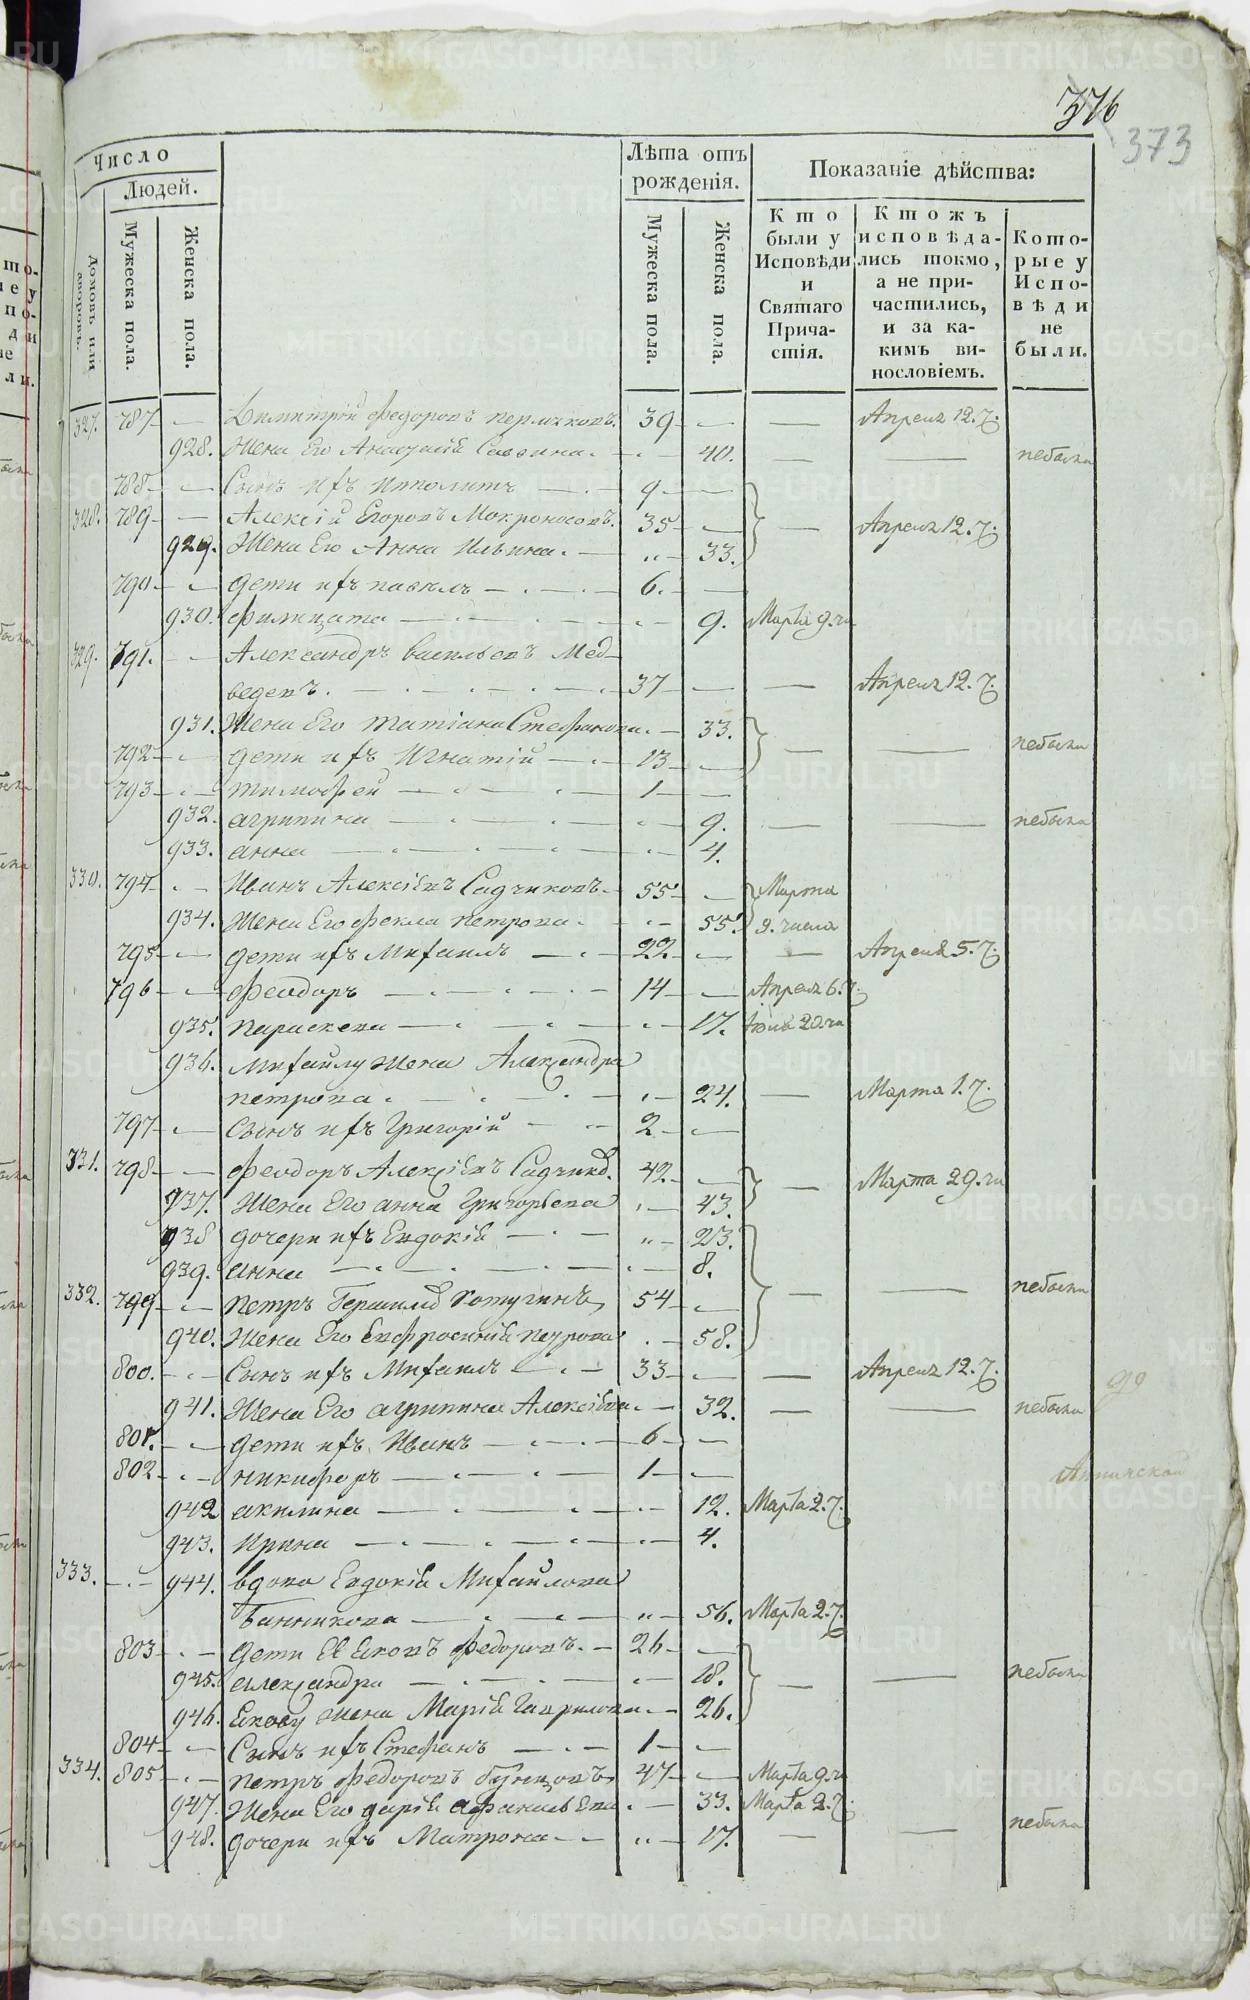 376
373
Число
Людей.
Домовъ или дворовъ.
Мужеска пола.
Женска пола.
Лѣта отъ рожденія.
Мужеска пола.
Женска пола.
Показаніе дѣйства:
Кто были у Исповѣди и Святаго Причастія.
Ктожъ исповѣдались токмо, а не причастились, и за какимъ винословіемъ.
Которые у Исповѣди не были.
327. 787 — Димитрій Федоровъ Пермяковъ. 39 — — Апреля 12.ч.
928. Жена Его Анастасія Саввина. — 40. — — небыла
788 — Сынъ ихъ Ипполитъ — 9 —
328. 789 — Алексій Егоровъ Мокроносовъ. 35 — — Апреля 12.ч.
929. Жена Его Анна Ильина. — „ — 33.
790 — дети ихъ павелъ — 6. —
930. филицата — 9. Марта 9.чи
329. 791. — Александръ васильевъ Мед-
ведевъ. — 37 — — Апреля 12.ч.
931. Жена Его татіана Стефанова — 33.
792 — дети ихъ Игнатій — 13 — — — небыли
793 — тимофей — 1 —
932. агрипина — 9. — — небыла
933. анна — 4.
330. 794 — Иванъ Алексіевъ Садчиковъ — 55 — Марта
934. Жена Его фекла петрова. — 55. 9. числа
795 — дети ихъ Михаилъ — 22 — — Апреля 5.ч.
796 — феодоръ — 14 — Апреля 6.ч.
935. параскева — 17. Июля 20.чи
936. Михайлу жена Александра
петрова. — 24. — Марта 1.ч.
797 — Сынъ ихъ Григорій — 2 —
331. 798 — феодоръ Алексіевъ Садчиков. 42 — — Марта 29.чи
937. Жена Его анна Григорьева — 43.
938 дочери ихъ Евдокія — „ — 23.
939. анна — 8.
332. 799 — петръ Котугинъ 54 — — — небыли
940. Жена Его Евфросинія петрова — 58.
800. — Сынъ ихъ Михаилъ — 33 — — Апреля 12.ч.
941. Жена Его агрипина Алексіева — 32. — — небыла
801. — дети ихъ Иванъ — 6 —
802 — никифоръ — 1 —
942 акилина — 12. Марта 2.ч.
943. Ирина — 4.
333. — 944. вдова Евдокія Михайлова
Банникова — „ — 56. Марта 2.ч.
803 — дети Ея Іяковъ федоровъ. — 26 —
945. александра — 18. — — небыли
946. Іякову жена Марія Гаврилова — 26.
804 — Сынъ ихъ Стефанъ — 1 —
334. 805 — петръ федоровъ 47 — Марта 9.чи
947. Жена Его дарія афанасьева. — 33. Марта 2.ч.
948. дочери ихъ Матрона — „ — 17. — — небыла